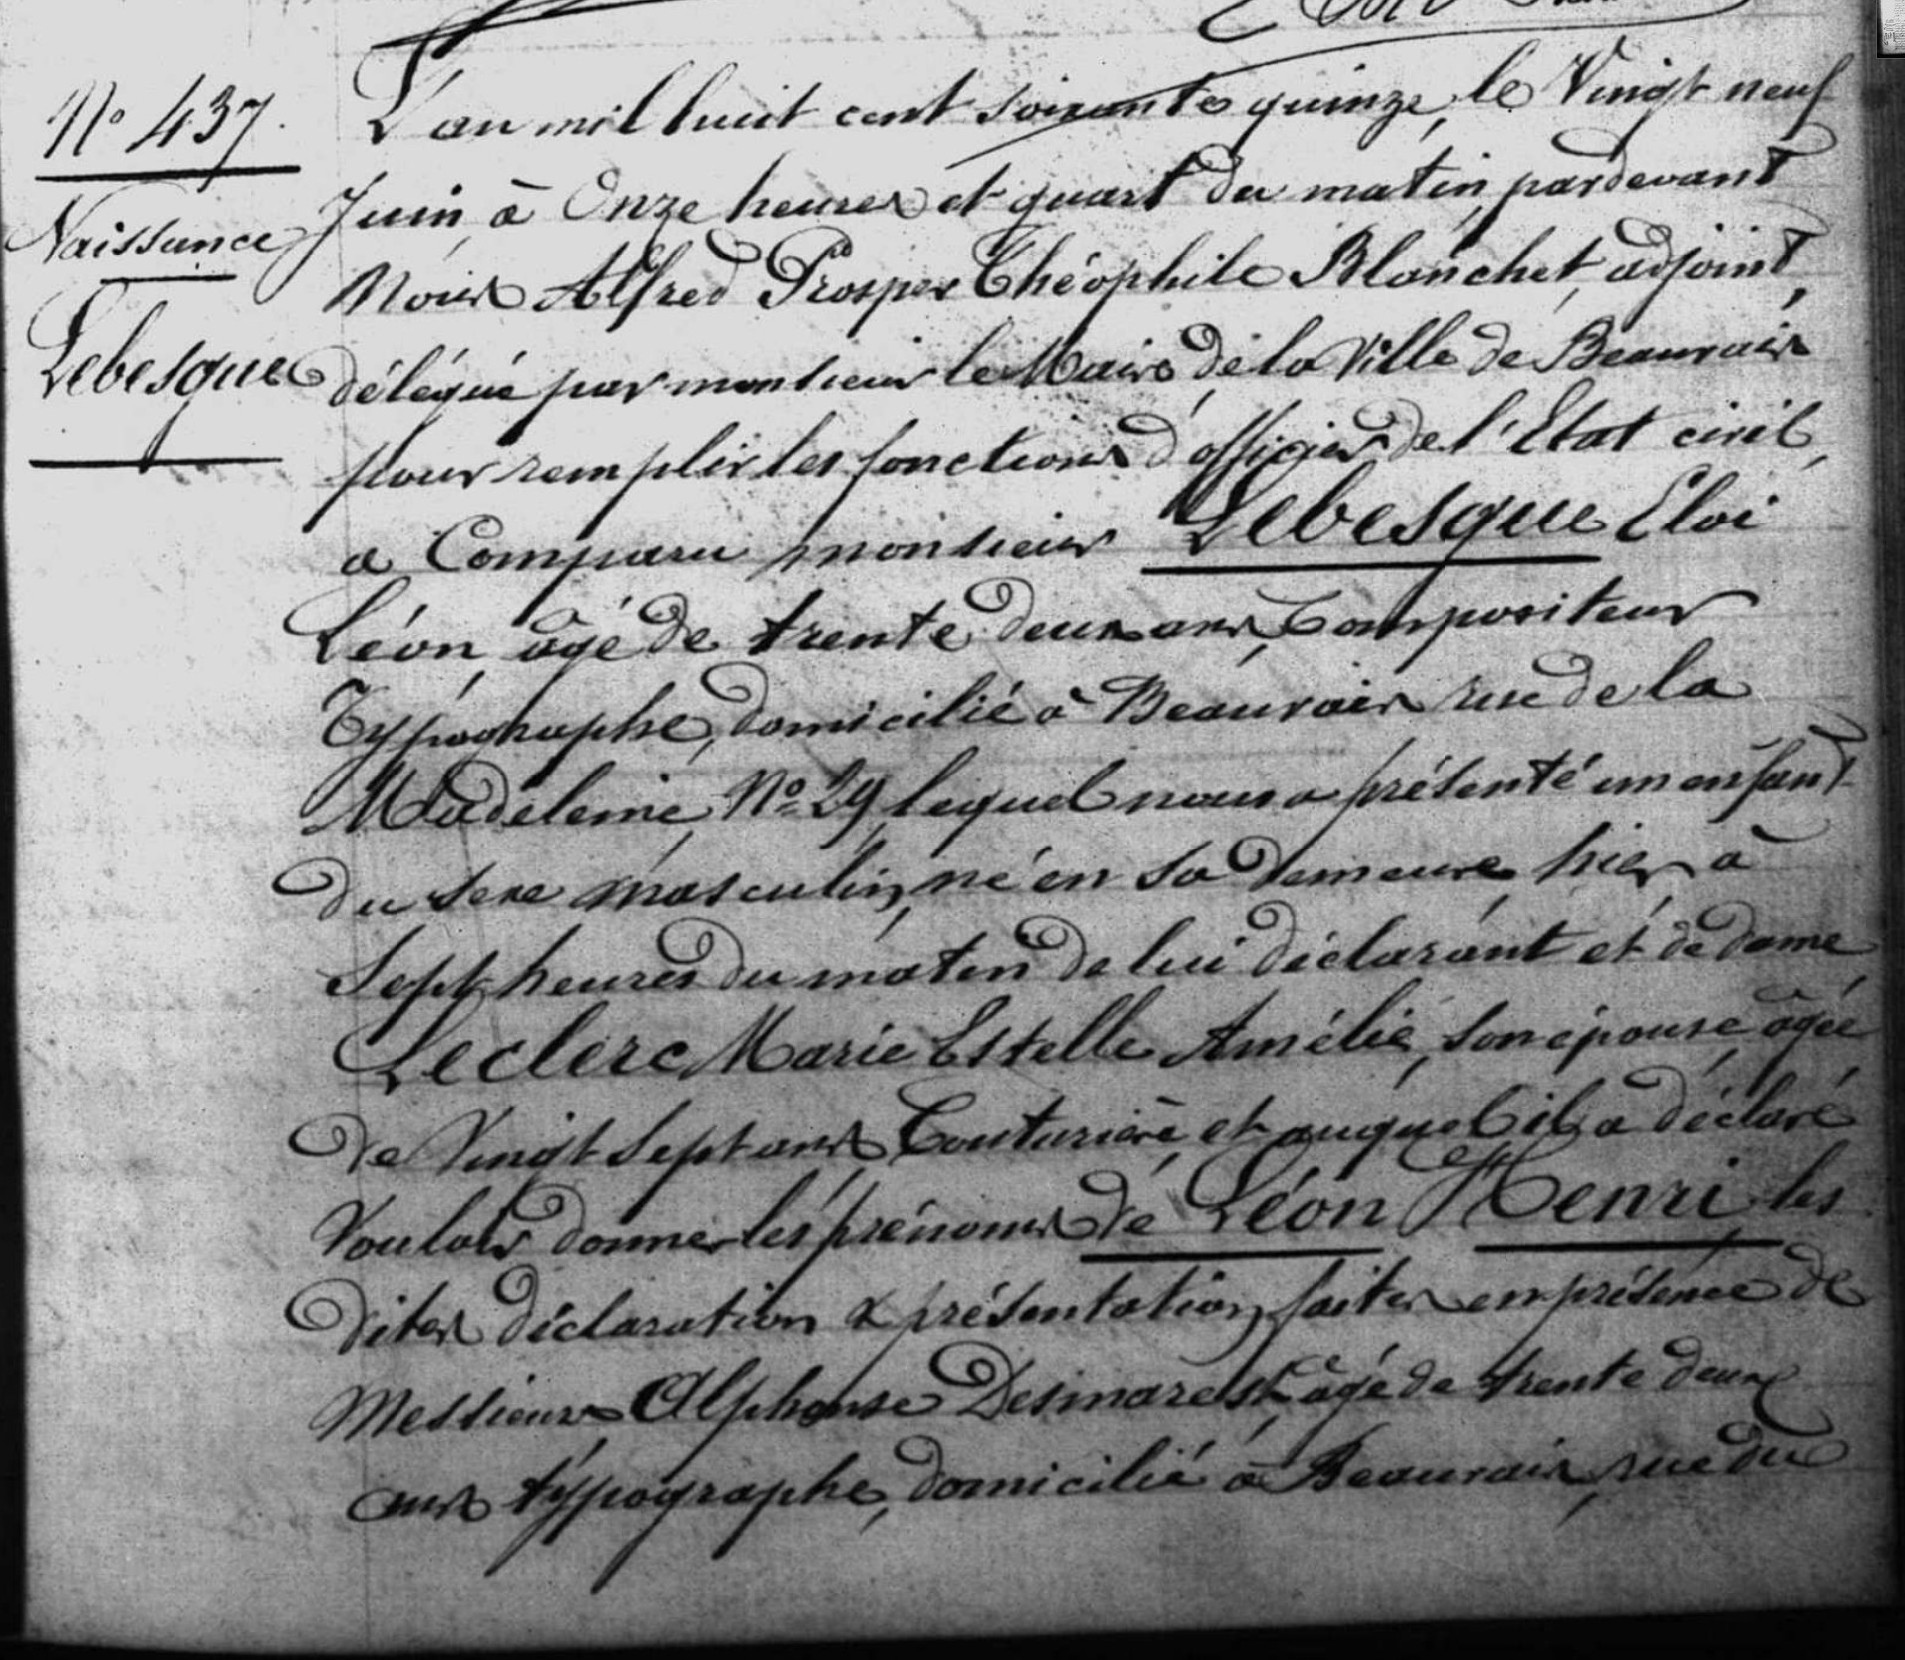 N° 437.
Naissance
Lebesgue
L'an mil huit cent soixante quinze, le Vingt neuf
Juin, à Onze heures et quart du matin, pardevant
Nous Alfred Prosper Théophile Blanchet, adjoint,
délégué par monsieur le Maire de la Ville de Beauvais
pour remplir les fonctions d'officier de l'Etat civil,
a Comparu monsieur Lebesgue Eloi
Léon, âgé de trente deux ans, Compositeur
Typographe, domicilié à Beauvais rue de la
Madeleine, N° 29, lequel nous a présenté un enfant
du sexe masculin, né en sa demeure, hier, à
Sept heures du matin de lui déclarant et de dame
Leclerc Marie Estelle Amélie, son épouse, âgée
de Vingt Sept ans Couturière, et auquel il a déclaré
Vouloir donner les prénoms de Léon Henri les
dites déclaration & présentation faites en présence de
Messieurs Alphonse Desmarest, âgé de trente deux
ans typographe, domicilié à Beauvais, rue du